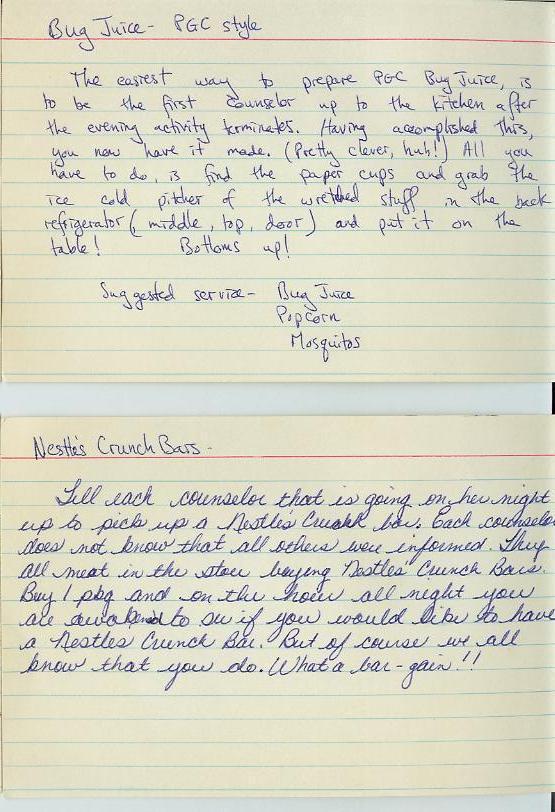 Bug Juice - PGC style
The easiest way to prepare PGC Bug Juice, is
to be the first counselor up to the kitchen after
the evening activity terminates. Having accomplished this,
you now have it made. (Pretty clever, huh!) All you
have to do, is find the paper cups and grab the
ice cold pitcher of the wretched stuff in the back
refrigerator (middle, top, door) and put it on the
table! Bottoms up!
Suggested service- Bug Juice
Popcorn
Mosquitos
Nestle's Crunch Bars -
Tell each counselor that is going on her night
up to pick up a Nestle's Crunch bar. Each counselor
does not know that all others were informed. They
all meat in the store buying Nestles Crunch Bars.
Buy 1 pkg and on the hour all night you
are awakened to see if you would like to have
a Nestles Crunch Bar. But of course we all
know that you do. What a bar-gain!!